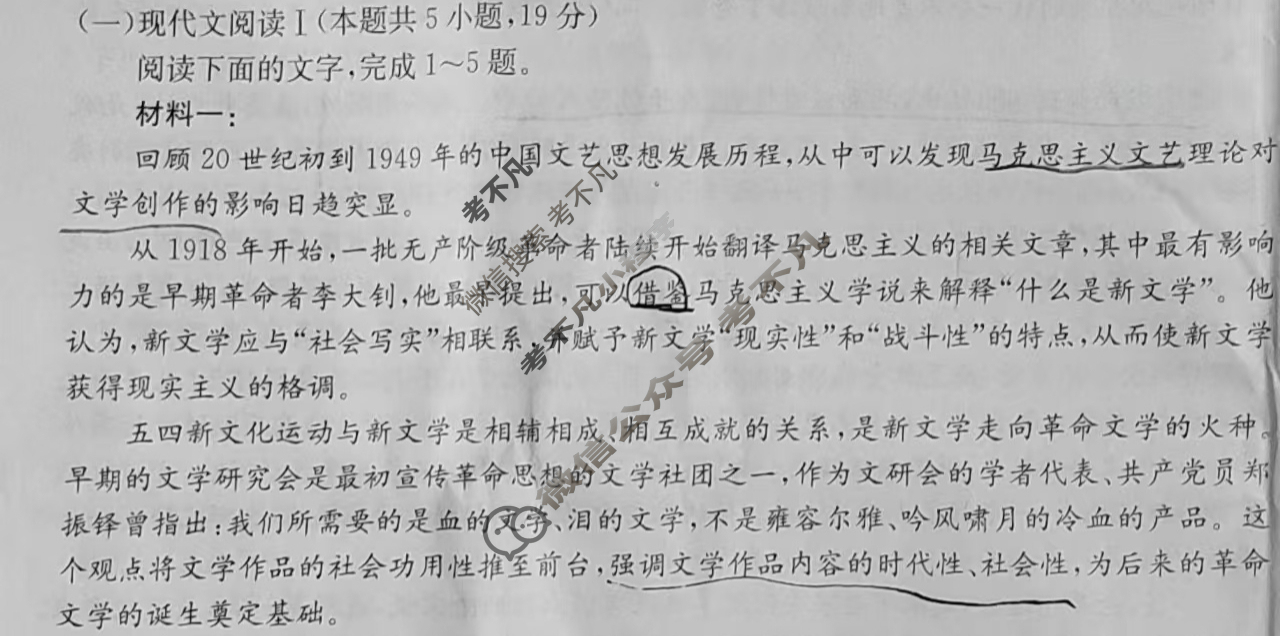 (一)现代文阅读Ⅰ(本题共5小题,19分)
阅读下面的文字,完成1~5题。
材料一:
回顾20世纪初到1949年的中国文艺思想发展历程,从中可以发现马克思主义文艺理论对
文学创作的影响日趋突显。
从1918年开始,一批无产阶级革命者陆续开始翻译马克思主义的相关文章,其中最有影响
力的是早期革命者李大钊,他最早提出,可以借鉴马克思主义学说来解释“什么是新文学”。他
认为,新文学应与“社会写实”相联系,并赋予新文学“现实性”和“战斗性”的特点,从而使新文学
获得现实主义的格调。
五四新文化运动与新文学是相辅相成、相互成就的关系,是新文学走向革命文学的火种。
早期的文学研究会是最初宣传革命思想的文学社团之一,作为文研会的学者代表、共产党员郑
振铎曾指出:我们所需要的是血的文学、泪的文学,不是雍容尔雅、吟风啸月的冷血的产品。这
个观点将文学作品的社会功用性推至前台,强调文学作品内容的时代性、社会性,为后来的革命
文学的诞生奠定基础。
考不凡
微信搜索:考不凡
考不凡小程序
微信公众号:考不凡